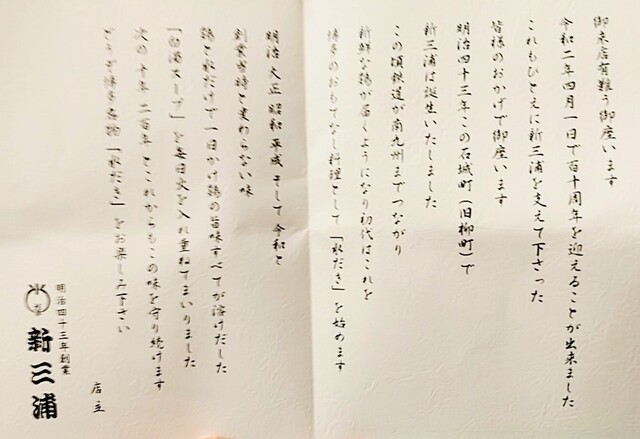 御来店有難う御座います
令和二年四月一日で百十周年を迎えることが出来ました
これもひとえに新三浦を支えて下さった
皆様のおかげで御座います
明治四十三年この石城町(旧柳町)で
新三浦は誕生いたしました
この頃鉄道が南九州までつながり
新鮮な鶏が届くようになり初代はこれを
博多のおもてなし料理として「水だき」を始めます
明治 大正 昭和 平成 そして 令和と
創業当時と変わらない味
鶏と水だけで一日かけ鶏の旨味すべてが溶けだした
「白濁スープ」を毎日火を入れ重ねてまいりました
次の十年 二百年 とこれからもこの味を守り続けます
どうぞ博多名物「水だき」をお楽しみ下さい
店主
明治四十三年創業
新三浦